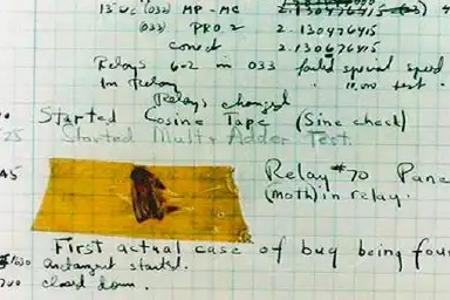 13"uc (032) MP - MC 2.130476415
(033) PRO 2 2.130476415
conect 2.130676415
Relays 6-2 in 033 failed special speed
In Relay 10,000 test.
Relays changed
Started Cosine Tape (Sine check)
Started Mult + Adder Test.
Relay #70 Pane
(moth) in relay.
First actual case of bug being fou
antangent started.
closed down.